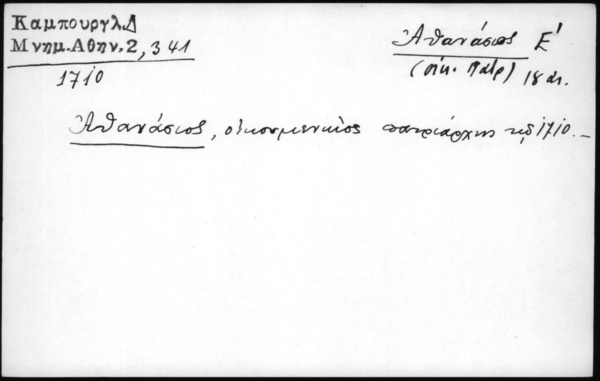 Καμπουργλ.Δ
Μνημ.Αθην.2, 341
1710
Ἀθανάσιος Ε'
(οἰκ. Πατρ) 18 αι.
Ἀθανάσιος, οἰκουμενικὸς πατριάρχης τῷ 1710.-